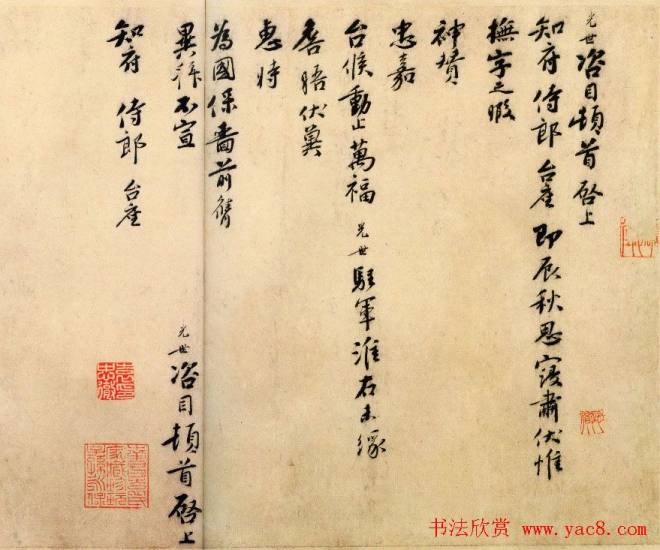 光世咨目頓首啓上
知府侍郎台座即辰秋思寖肅伏惟
撫字之暇
神贊
忠嘉
台候動止萬福光世駐軍淮右未緣
晤伏冀
惠時
為國保嗇前膺
異拜不宣
光世咨目頓首啓上
知府侍郎台座
书法欣赏 www.yac8.com